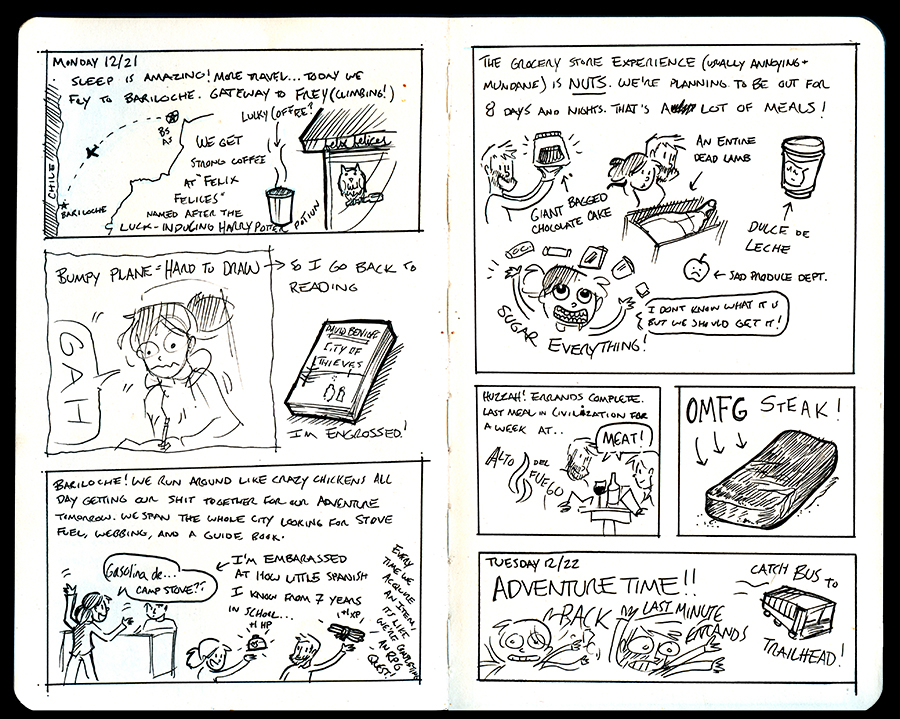 MONDAY 12/21
SLEEP IS AMAZING! MORE TRAVEL... TODAY WE
FLY TO BARILOCHE. GATEWAY TO FREY (CLIMBING!)
CHILE
BS
AS
BARILOCHE
WE GET
STRONG COFFEE
AT "FELIX
FELICES"
NAMED AFTER THE
LUCK-INDUCING HARRY POTTER POTION
LUCKY COFFEE?
felix felices
BUMPY PLANE = HARD TO DRAW
GAH
& I GO BACK TO
READING
DAVID BENIOFF
CITY OF
THIEVES
I'M ENGROSSED!
BARILOCHE! WE RUN AROUND LIKE CRAZY CHICKENS ALL
DAY GETTING OUR SHIT TOGETHER FOR OUR ADVENTURE
TOMORROW. WE SPAN THE WHOLE CITY LOOKING FOR STOVE
FUEL, WEBBING, AND A GUIDE BOOK.
Gasolina de...
CAMP STOVE??
I'M EMBARASSED
AT HOW LITTLE SPANISH
I KNOW FROM 7 YEARS
IN SCHOOL...
+1 HP
+1 XP!
EVERY
TIME WE
ACQUIRE
AN ITEM,
IT'S LIKE
WE'RE COMPLETING
AN RPG
QUEST!
THE GROCERY STORE EXPERIENCE (USUALLY ANNOYING +
MUNDANE) IS NUTS. WE'RE PLANNING TO BE OUT FOR
8 DAYS AND NIGHTS. THAT'S A LOT OF MEALS!
GIANT BAGGED
CHOCOLATE CAKE
AN ENTIRE
DEAD LAMB
DULCE DE
LECHE
SAD PRODUCE DEPT.
I DON'T KNOW WHAT IT IS
BUT WE SHOULD GET IT!
SUGAR
EVERYTHING!
HUZZAH! ERRANDS COMPLETE.
LAST MEAL IN CIVILIZATION FOR
A WEEK AT..
ALTO
DEL
FUEGO
MEAT!
OMFG STEAK!
TUESDAY 12/22
ADVENTURE TIME!!
PACK
LAST MINUTE
ERRANDS
CATCH BUS TO
TRAILHEAD!